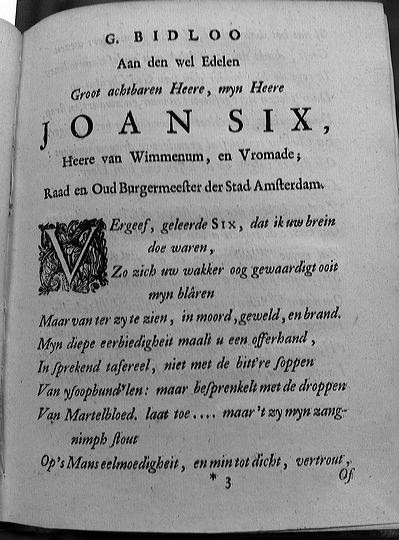 G. BIDLOO
Aan den wel Edelen
Groot achtbaren Heere, myn Heere
JOAN SIX,
Heere van Wimmenum, en Vromade;
Raad en Oud Burgermeeſter der Stad Amſterdam.
VErgeef, geleerde SIX, dat ik uw brein
doe waren,
Zo zich uw wakker oog gewaardigt ooit
myn blâren
Maar van ter zy te zien, in moord, geweld, en brand.
Myn diepe eerbiedigheit maalt u een offerhand,
In ſprekend tafereel, niet met de bitt're ſoppen
Van yſoopbund'len: maar beſprenkelt met de droppen
Van Martelbloed. laat toe .... maar 't zy myn zang-
nimph ſtout
Op's Mans eelmoedigheit, en min tot dicht, vertrout,
* 3
Of